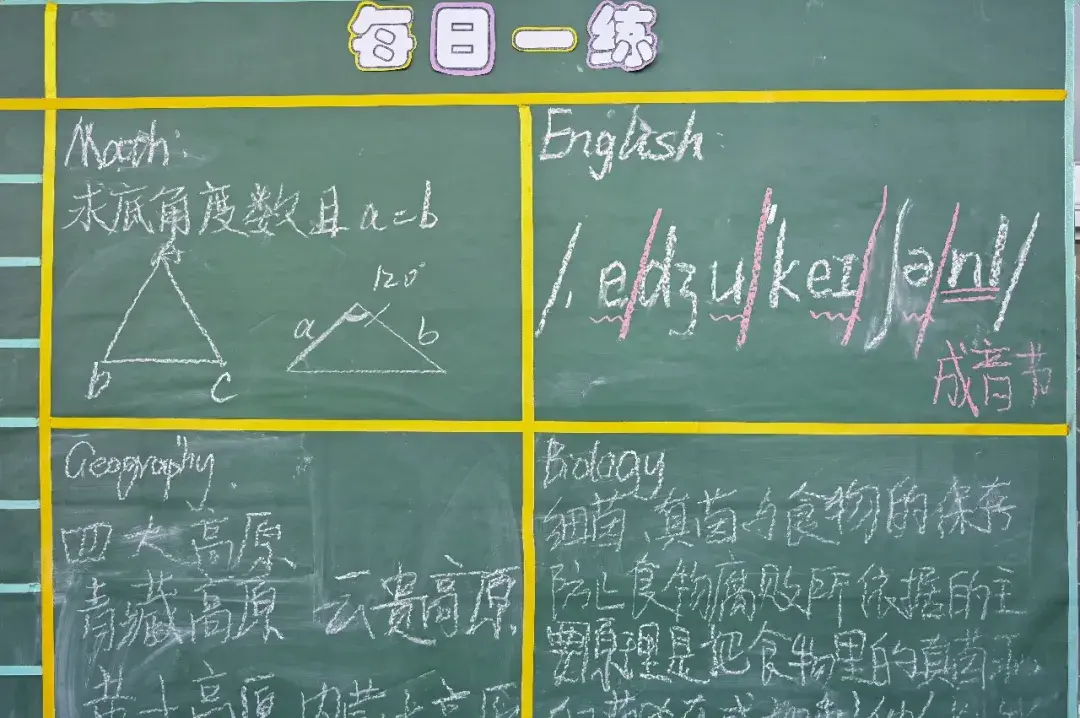 每日一练
Math:
求底角度数且a=b
120°
a
b
b
c
English:
/ˌedʒuˈkeɪʃənl/
成音节
Geography.
四大高原
青藏高原 云贵高原
黄土高原 内蒙古高原
Biology
细菌、真菌与食物的保存
防止食物腐败所依据的主
要原理是把食物里的真菌